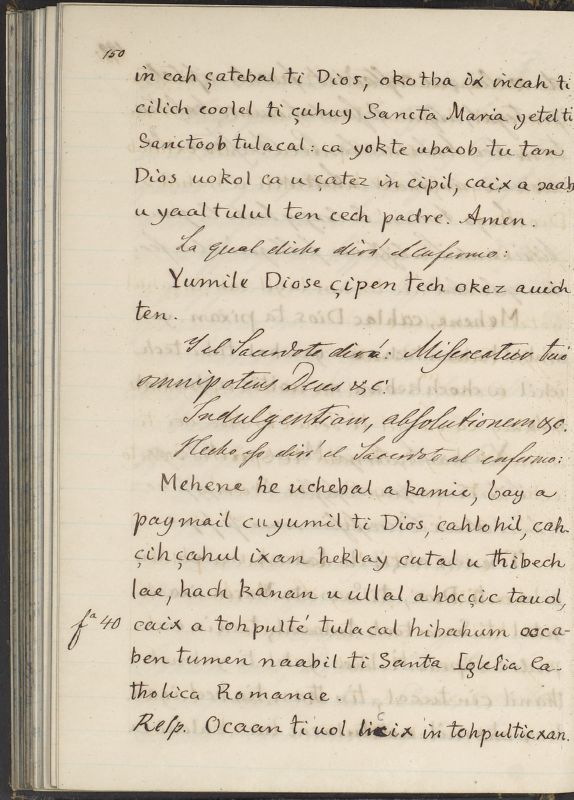 150
in cah çatebal ti Dios, okotba ix in cah ti
cilich coolel ti çuhuy Sancta Maria yetel ti
Sanctoob tulacal: ca yokte ubaob tu tan
Dios uokol ca u çatez in cipil, caix a ɔaab
u yaal tulul ten cech padre. Amen.
La qual dicha dirá el enfermo:
Yumile Diose çipen tech okez auich
ten.
Y el Sacerdote dirá: Misereatur tui
omnipotens Deus &c:
Indulgentiam, absolutionem &c.
Hecho esso dirá el Sacerdote al enfermo:
Mehene he uchebal a kamic, bay a
paymail cuyumil ti Dios, cahlohil, cah-
çihçahul ixan heklay cutal u thibech
lae, hach kanan u ullal a hocçic tauol,
fª 40 caix a tohpulté tulacal hibahum ooca-
ben tumen naabil ti Santa Iglesia Ca-
tholica Romanae.
Resp. Ocaan ti uol licix in tohpulticxan.